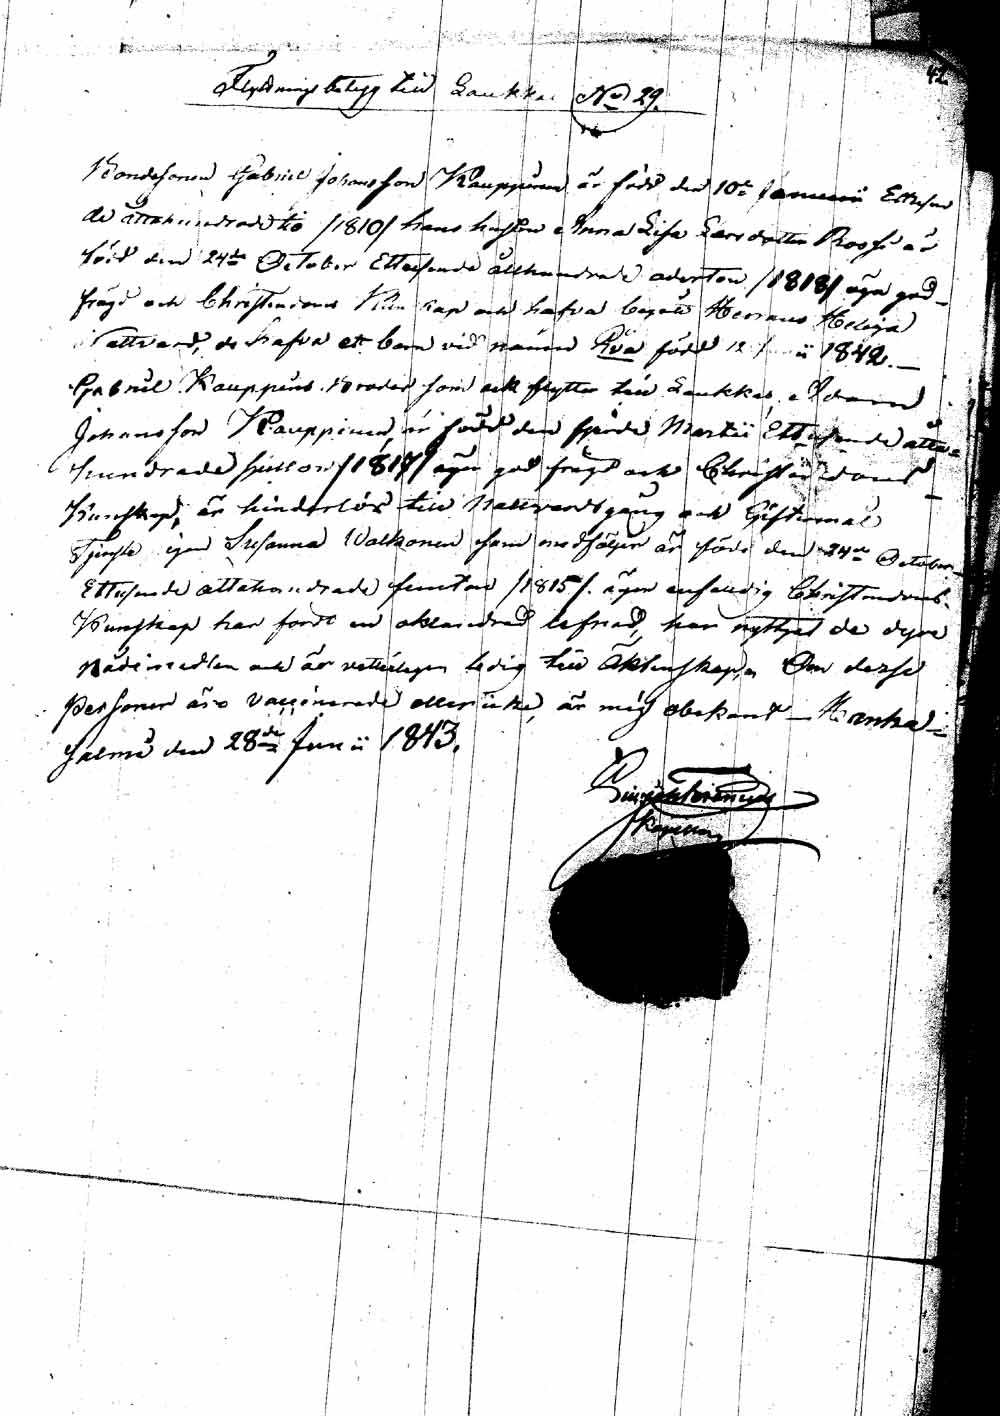 42
Flyttnings betygg till Laukka. No 29.
Bondesonen Gabriel Johansson Kauppinen är född den 10de Januarii Ettusen
de åttahundrade tio /1810/ hans hustru Anna Lisa Larsdotter är
född den 24de October Ettusende åttahundrade aderton /1818/ äga god
frägd och Christendoms Kunskap och hafva begått Herrans Heliga
Nattvard, de hafva ett barn vid namn Eva född 12 1842. —
Gabriel Kauppins Broder som ock flyttar till Laukka, Adam
Johansson Kauppinen, är född den fjerde Martii Ettusende åtta=
hundrade sjutton /1817/ äger god frägd och Christendoms
Kunskap, är hinderlös till Nattvardsgång och Giftermål
Tjenste pigan Susanna Walkonen som medföljer är född den 24de October
Ettusende åttahundrade femton /1815/. äger enfaldig Christendoms
Kunskap har fördt en oklandrad lefnad, har nyttjat de dyra
nådemedlen och är veterligen ledig till Äktenskap. Om desse
personer äro vaccinerade eller icke, är mig obekant — Hanka=
salmi den 28de Junii 1843.